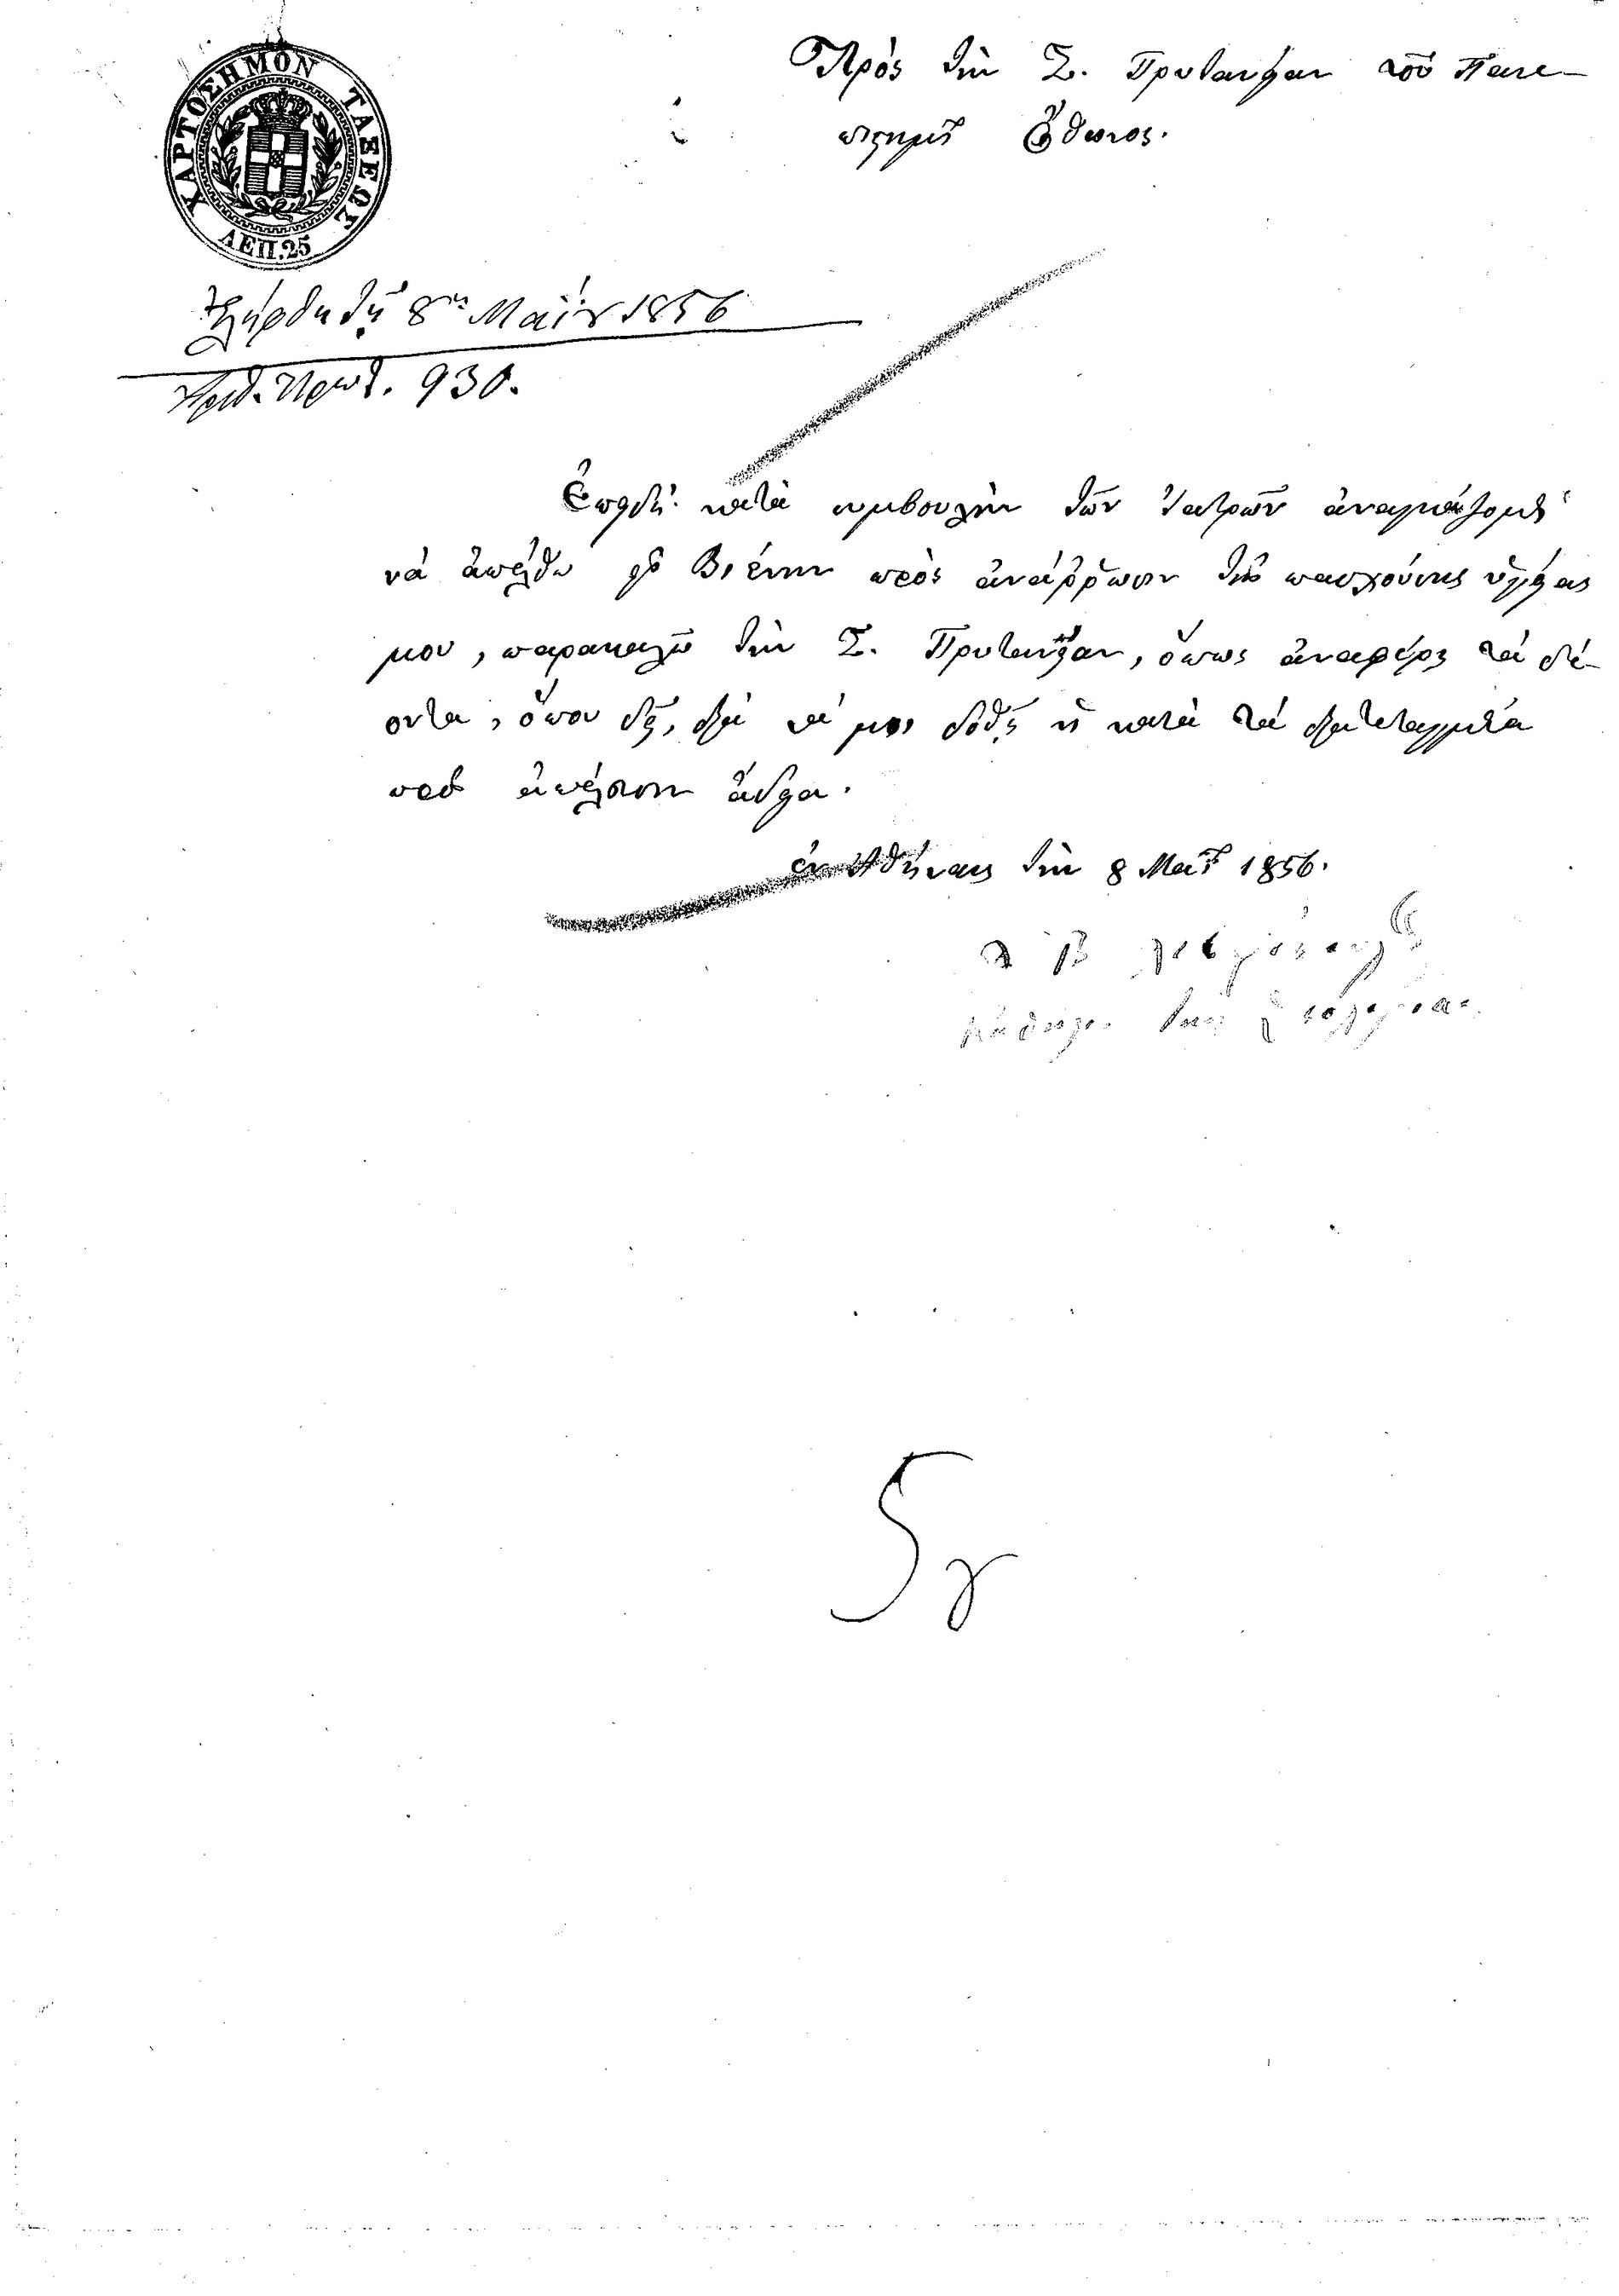 ΧΑΡΤΟΣΗΜΟΝ ΤΑΞΕΩΣ
ΛΕΠ.25
Πρὸς τὴν Σ. Πρυτανείαν τοῦ Πανε-
πιστημίȣ Ὄθωνος.
Ἐλήφθη τῇ 8ῃ Μαΐȣ 1856
Ἀριθ. Πρωτ. 930.
Ἐπειδὴ κατὰ συμβουλὴν τῶν ἰατρῶν ἀναγκάζομαι
νὰ ἀπέλθω εἰς Βιέννην πρὸς ἀνάῤῥωσιν τῆς πασχούσης ὑγείας
μου, παρακαλῶ τὴν Σ. Πρυτανείαν, ὅπως ἀναφέρῃ τὰ δέ-
οντα, ὅπου δεῖ, διὰ νὰ μοι δοθῇ ἡ κατὰ τὰ διατεταγμένα
πρὸς ἀπέλευσιν ἄδεια.
ἐν Ἀθήναις τὴν 8 Μαΐȣ 1856.
τῆς